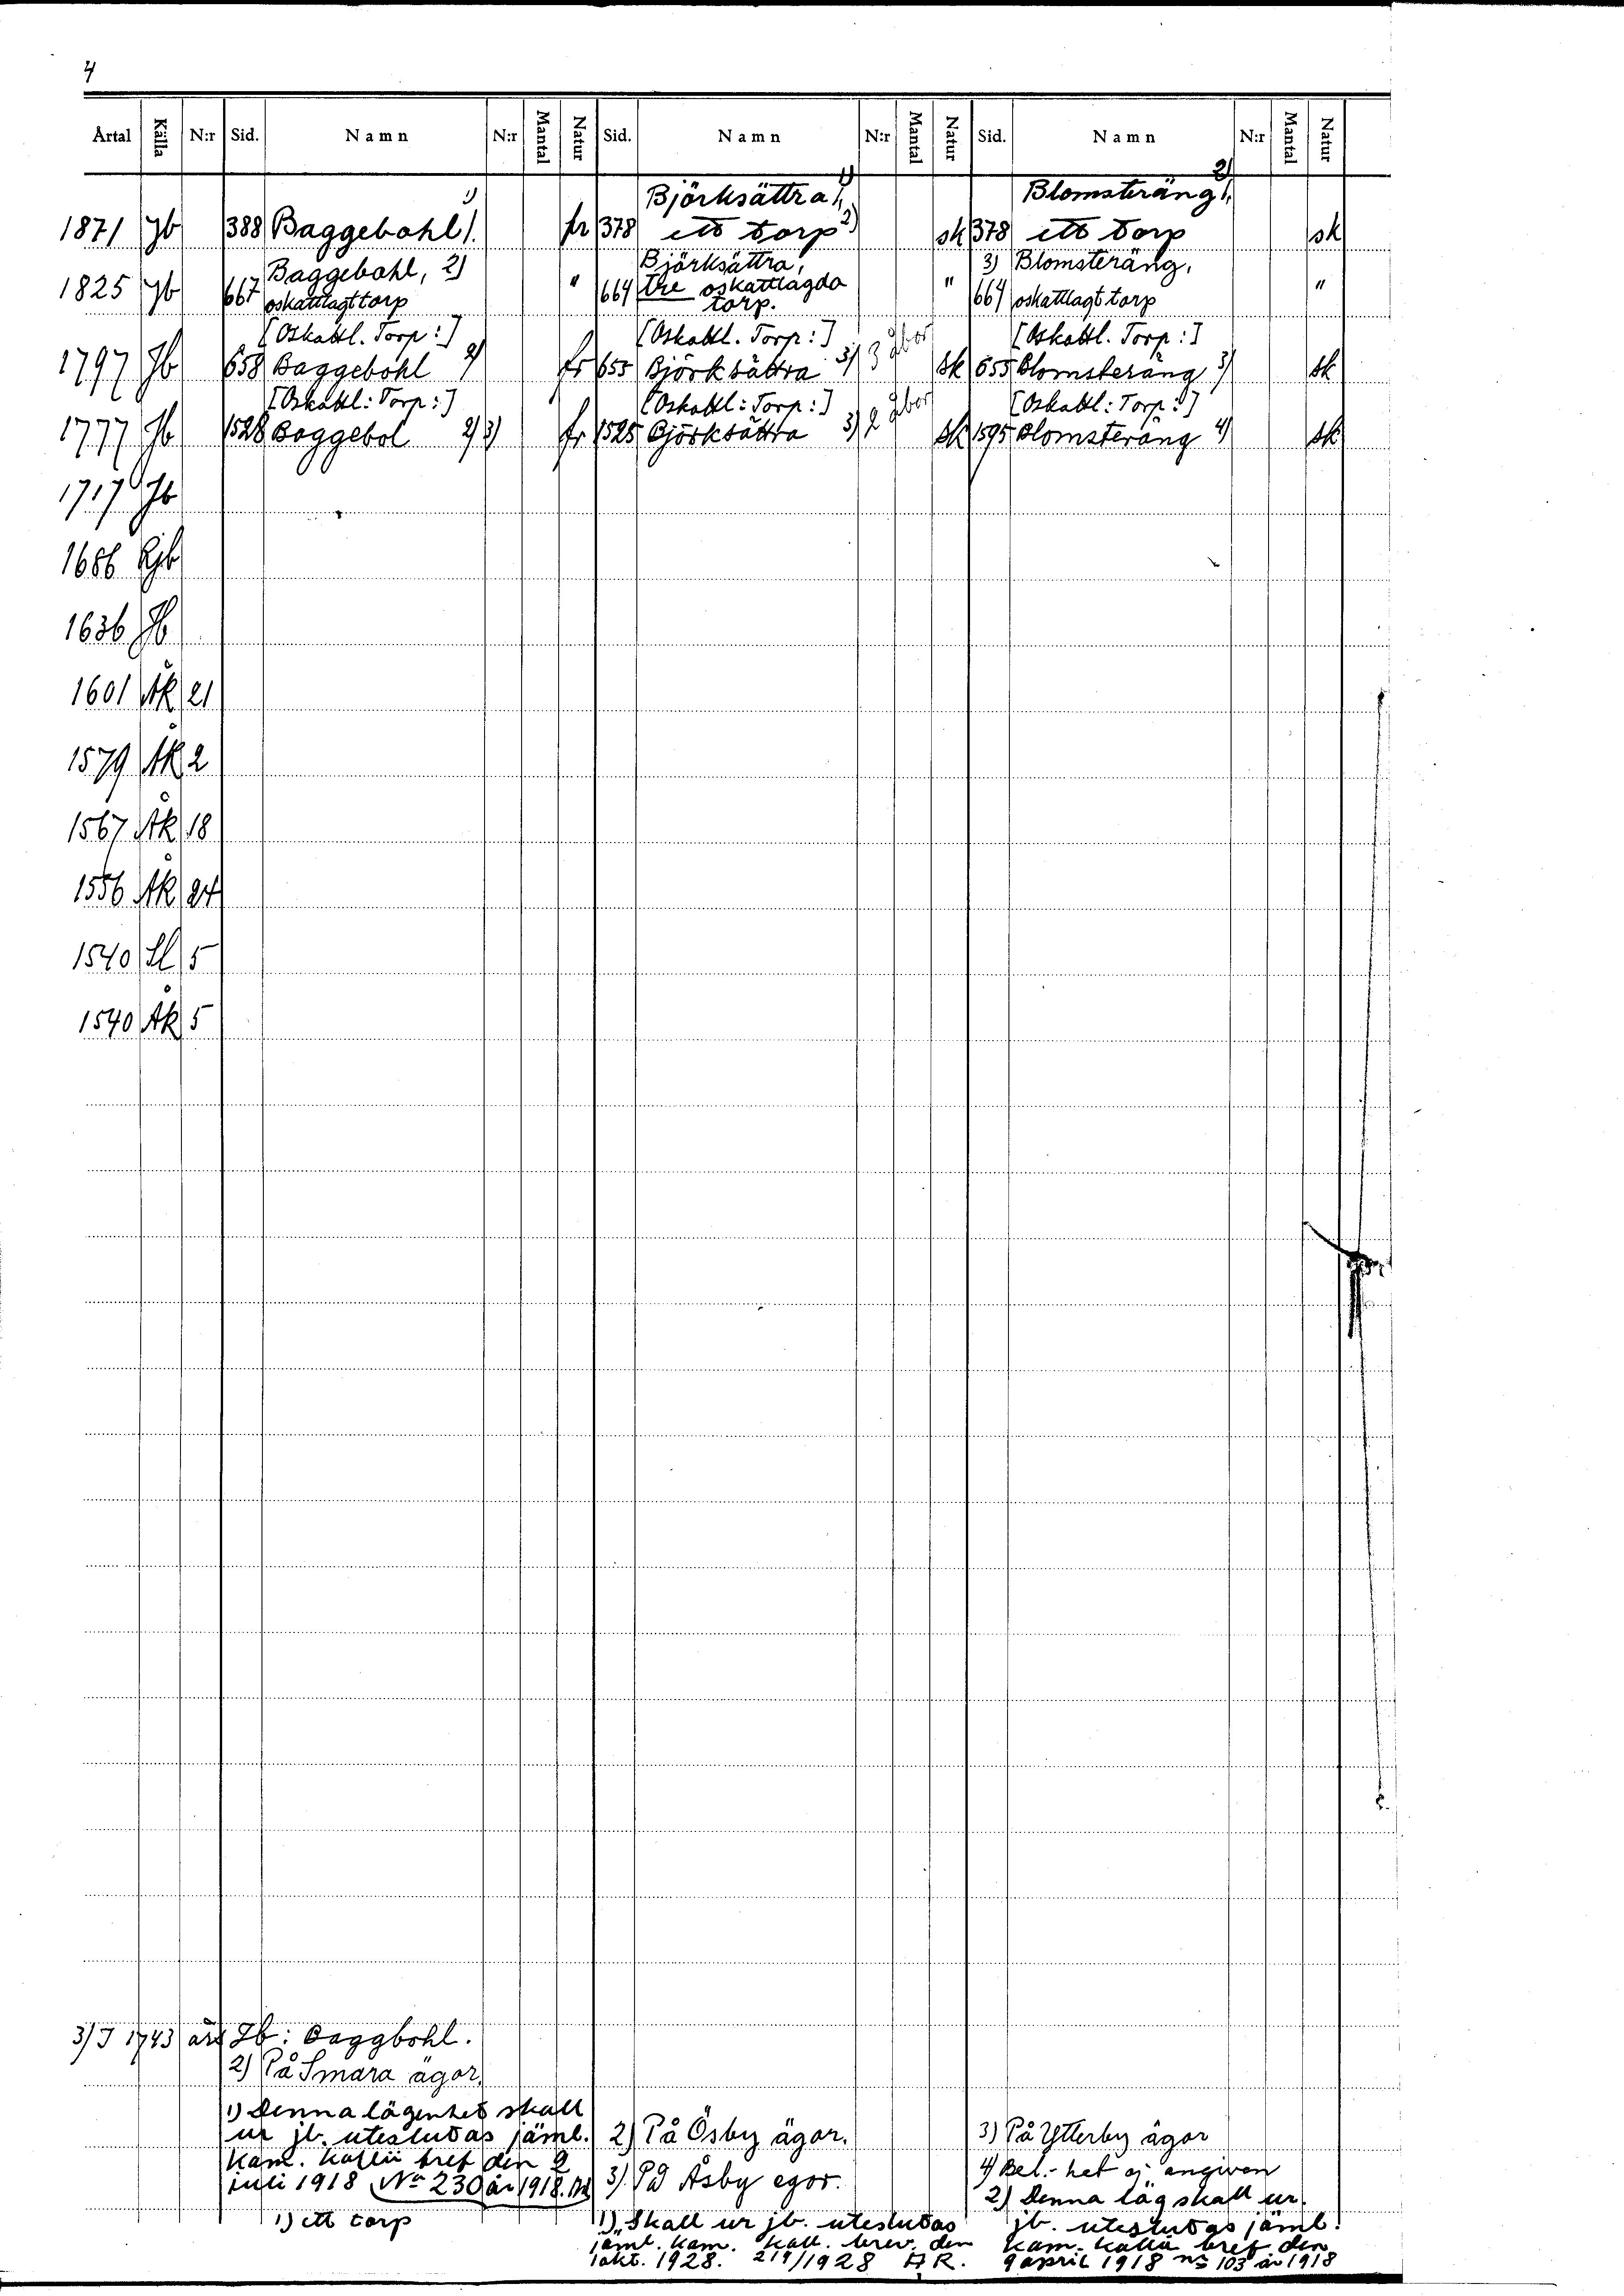 4
Årtal Källa N:r Sid. Namn N:r Mantal Natur Sid. Namn N:r Mantal Natur Sid. Namn N:r Mantal Natur
1) Björksättra, 1) Blomsteräng, 2)
1871 Jb 388 Baggebohl /. fr 378 ett torp 2) sk 378 ett torp sk
Baggebohl, 2) Björksättra, 3) Blomsteräng,
1825 Jb 667 oskattlagt torp " 664 tre oskattlagda torp. " 664 oskattlagt torp "
[Oskattl. Torp:] [Oskattl. Torp:] [Oskattl. Torp:]
1797 Jb 658 Baggebohl 2) fr 655 Björksättra 3) 3 åbor sk 655 Blomsteräng 3) sk
[Oskattl: Torp:] [Oskattl: Torp:] [Oskattl: Torp:]
1777 Jb 1528 Baggebol 2) 3) fr 1525 Björksättra 3) 2 åbor sk 1595 Blomsteräng 4) sk
1717 Jb
1686 Rjb
1636 Jb
1601 Åk 21
1579 Åk 2
1567 Åk 18
1556 Åk 24
1540 Sl 5
1540 Åk 5
3) I 1743 års Jb: Baggbohl.
2) På Smara ägor.
1) Denna lägenhet skall
ur jb. uteslutas jäml.
Kam. Kollii bref den 2
juli 1918 No 230 år 1918.
1) ett torp
2) På Ösby ägor.
3) På Åsby egor.
1) "Skall ur jb. uteslutas
jäml. Kam. Koll. brev. den
1 okt. 1928. 219/1928 A R.
3) På Ytterby ägor
4) Bel.-het ej angiven
2) Denna läg skall ur
jb. uteslutas jäml.
Kam. Kollii bref den
9 april 1918 no 103 år 1918